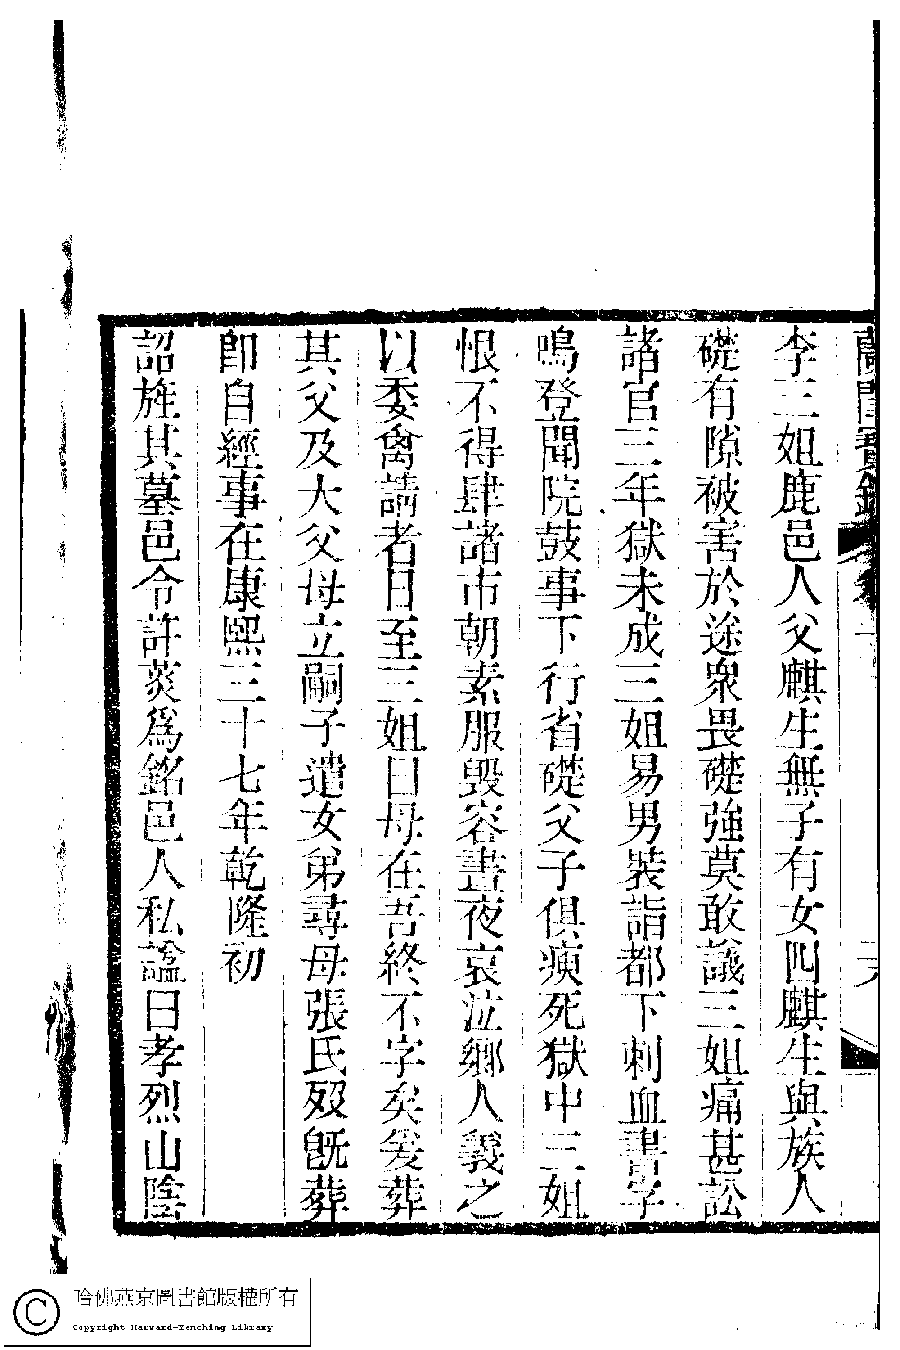 蘭閨寶錄
李三姐鹿邑人父麒生無子有女四麒生與族人
礎有隙被害於途衆畏礎強莫敢議三姐痛甚訟
諸官三年獄未成三姐易男裝詣都下刺血書字
鳴登聞院鼓事下行省礎父子俱瘐死獄中三姐
恨不得肆諸市朝素服毁容晝夜哀泣鄉人義之
以委禽請者日至三姐曰母在吾終不字矣爰葬
其父及大父母立嗣子遣女弟尋母張氏歿旣葬
卽自經事在康熙三十七年乾隆初
詔旌其墓邑令許菼爲銘邑人私諡曰孝烈山陰
哈佛燕京圖書館版權所有
Copyright Harvard-Yenching Library